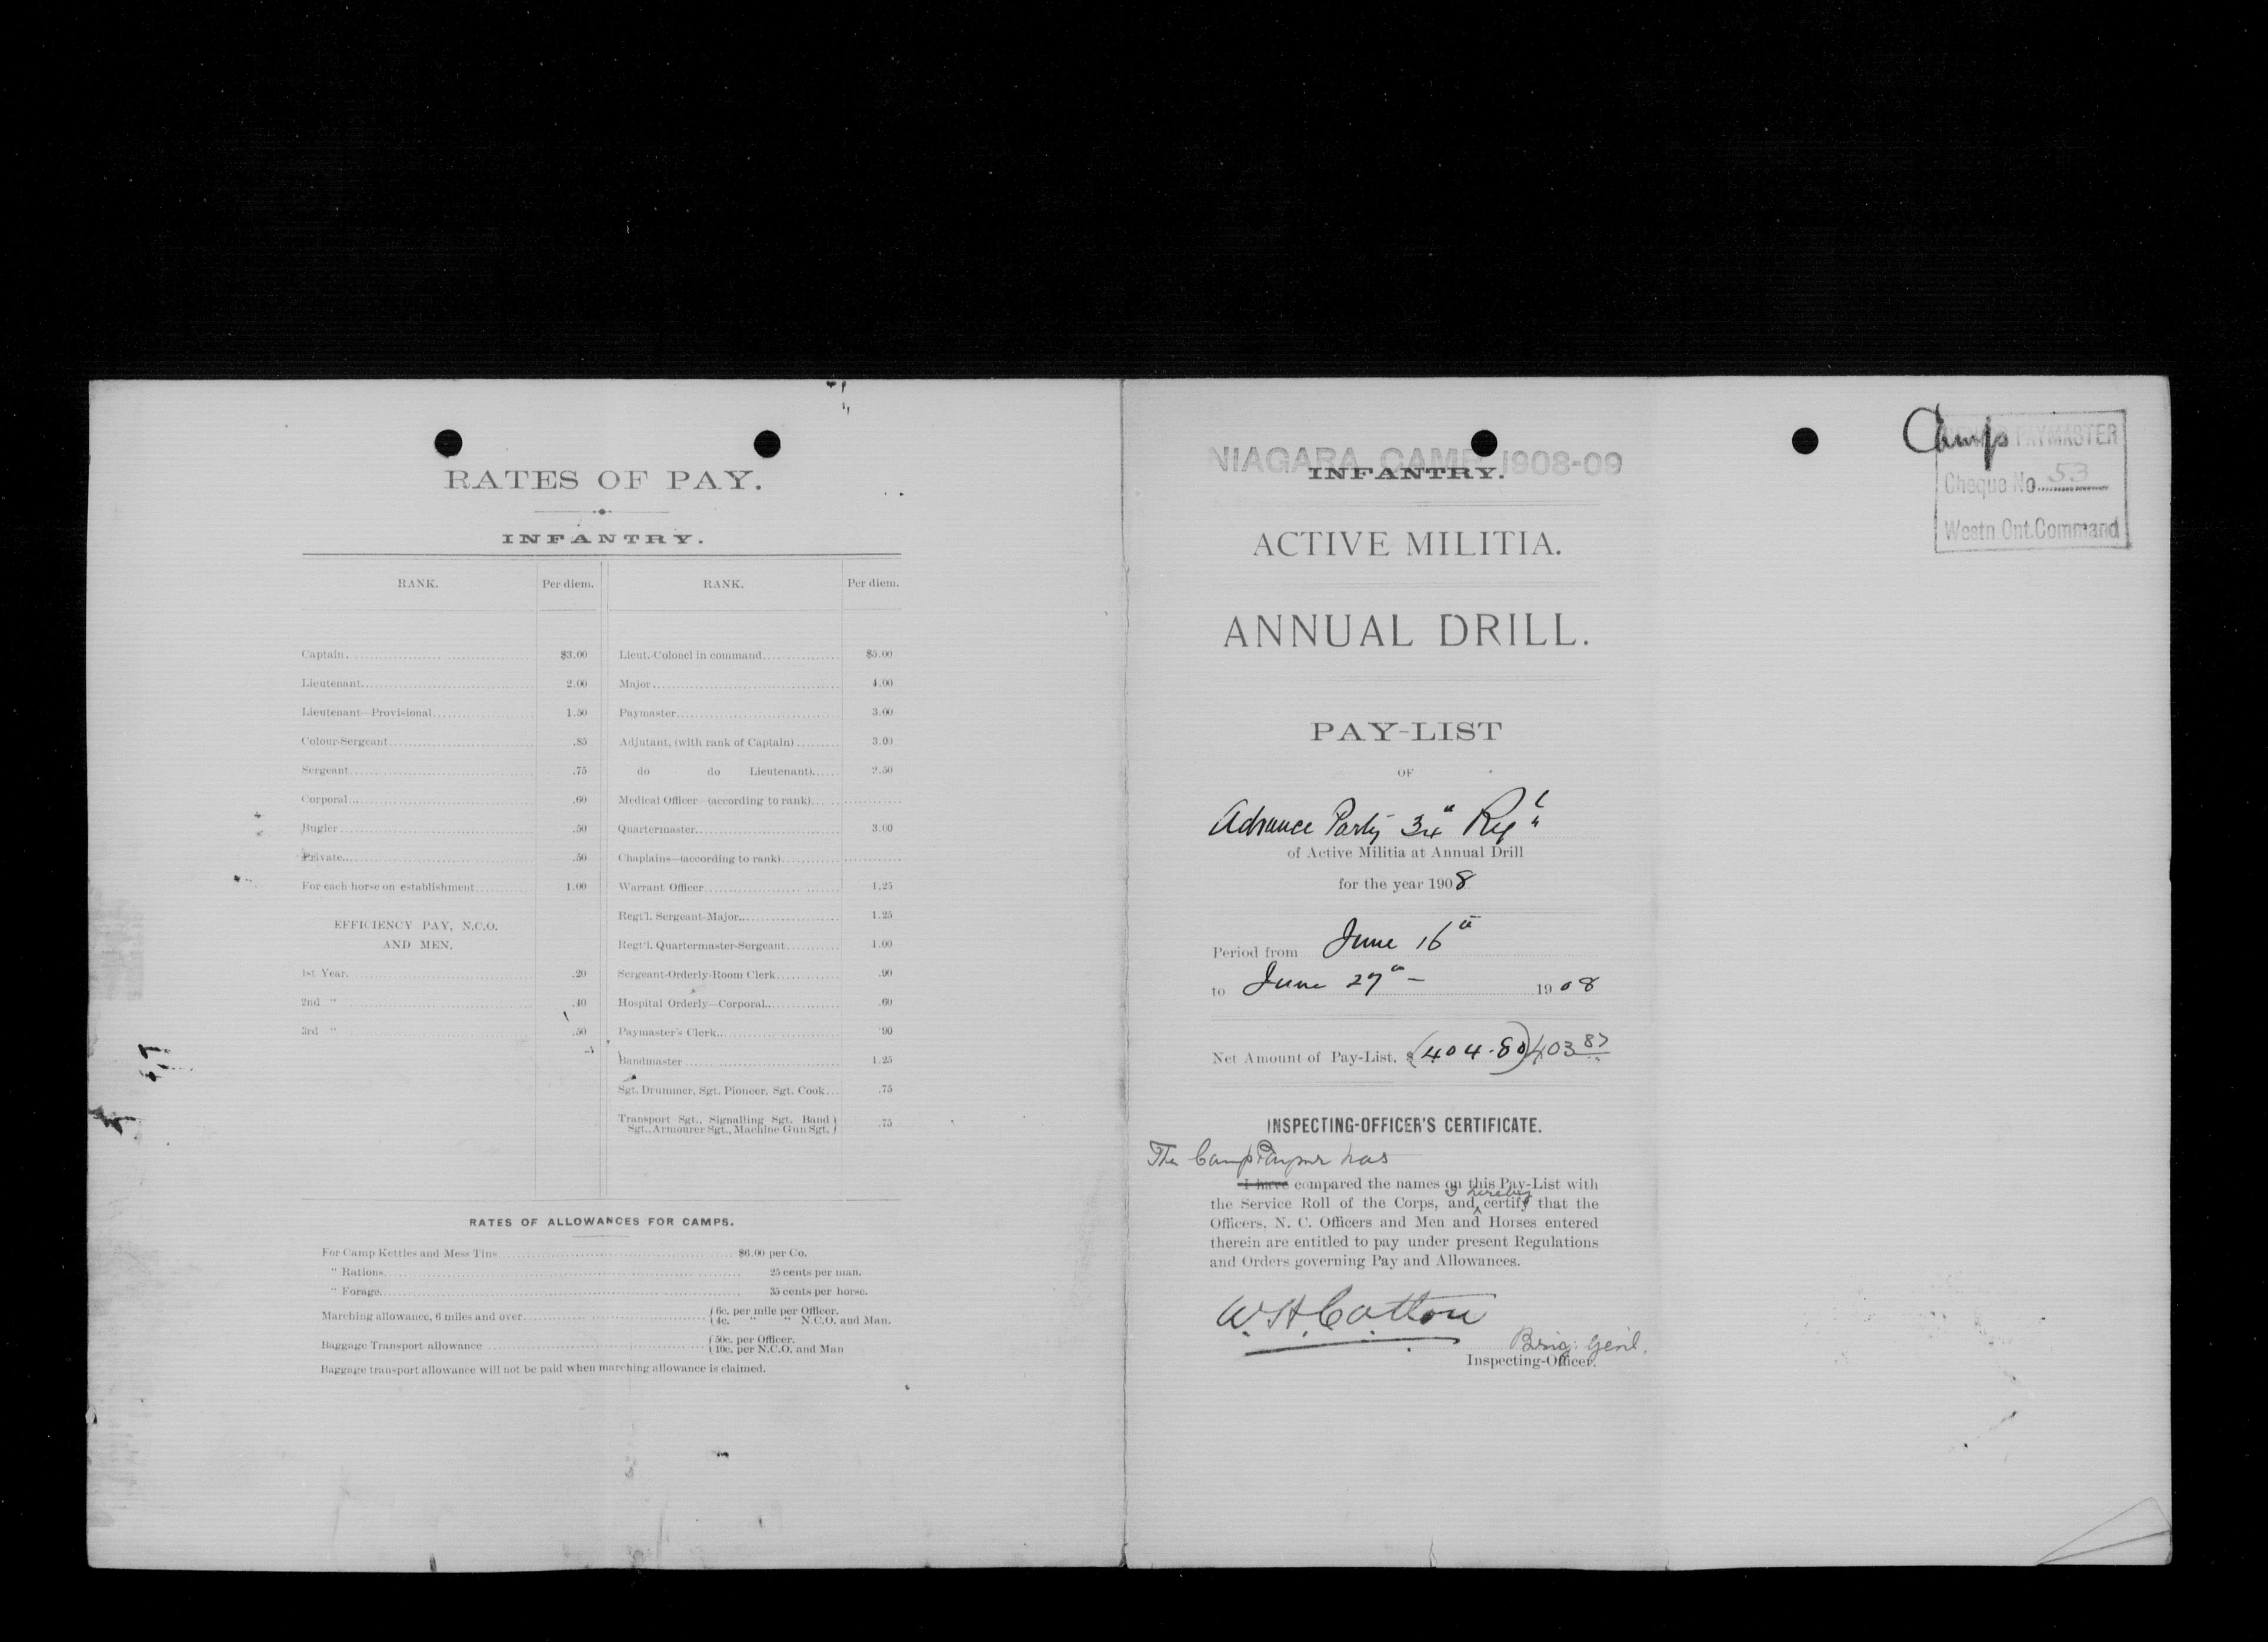 RATES OF PAY.
INFANTRY.
RANK. Per diem. RANK. Per diem.
Captain $3.00 Lieut.-Colonel in command $5.00
Lieutenant 2.00 Major 4.00
Lieutenant—Provisional 1.50 Paymaster 3.00
Colour-Sergeant .85 Adjutant, (with rank of Captain) 3.00
Sergeant .75 do do Lieutenant) 2.50
Corporal .60 Medical Officer—(according to rank)
Bugler .50 Quartermaster 3.00
Private .50 Chaplains—(according to rank)
For each horse on establishment 1.00 Warrant Officer 1.25
EFFICIENCY PAY, N.C.O. Regt'l. Sergeant-Major 1.25
AND MEN. Regt'l. Quartermaster-Sergeant 1.00
1st Year .20 Sergeant-Orderly-Room Clerk .90
2nd " .40 Hospital Orderly—Corporal .60
3rd " .50 Paymaster's Clerk 90
Bandmaster 1.25
Sgt. Drummer, Sgt. Pioneer, Sgt. Cook .75
Transport Sgt., Signalling Sgt., Band
Sgt., Armourer Sgt., Machine Gun Sgt. .75
RATES OF ALLOWANCES FOR CAMPS.
For Camp Kettles and Mess Tins $6.00 per Co.
" Rations 25 cents per man.
" Forage 35 cents per horse.
Marching allowance, 6 miles and over 6c. per mile per Officer.
4c. " " N.C.O. and Man.
Baggage Transport allowance 50c. per Officer.
10c. per N.C.O. and Man
Baggage transport allowance will not be paid when marching allowance is claimed.
NIAGARA CAMP 1908-09
INFANTRY.
ACTIVE MILITIA.
ANNUAL DRILL.
PAY-LIST
OF
Advance Party 34th Regt
of Active Militia at Annual Drill
for the year 1908
Period from June 16th
to June 27th – 1908
Net Amount of Pay-List, $ (404.80) 403 87
INSPECTING-OFFICER'S CERTIFICATE.
The Camp Paymr has
I have compared the names on this Pay-List with
the Service Roll of the Corps, and I hereby certify that the
Officers, N. C. Officers and Men and Horses entered
therein are entitled to pay under present Regulations
and Orders governing Pay and Allowances.
W. H. Cotton
Brig: Genl.
Inspecting-Officer.
Camps
PAYMASTER
Cheque No. 53
Westn Ont. Command